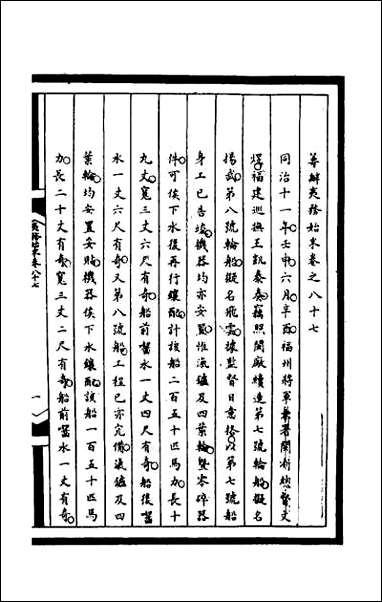 籌辦夷務始末卷之八十七
同治十一年壬申六月辛酉福州將軍兼署閩浙總督文
煜福建巡撫王凱泰奏竊照閩廠續造第七號輪船擬名
揚武第八號輪船擬名飛雲據監督日意格以第七號船
身工已告竣機器均亦安置惟汽鑪及四葉輪暨零碎器
件可俟下水後再行鑲配計該船二百五十匹馬力長十
九丈寬三丈六尺有奇船前當水一丈四尺有奇船後當
水一丈六尺有奇又第八號船工程已亦完備汽鑪及四
葉輪均安置妥貼機器俟下水鑲配該船一百五十匹馬
力長二十丈有奇寬三丈二尺有奇船前當水一丈有奇
夷務始末卷八十七
一